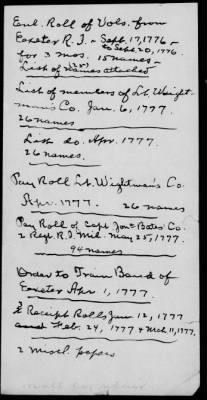 Enl. Roll of Vols. from
Exeter R.I. - Sept. 17, 1776 -
to Sept. 20, 1776.
for 3 mos. 15 names -
List of names attached
List of members of Lt. Weight-
man's Co. Jan. 6, 1777.
26 names
List do. Apr. 1777.
26 names.
Pay Roll Lt. Wightman's Co.
Apr. 1777. 26 names
Pay Roll of Capt Jona Bates' Co.
2 Regt R.I. Mil. May 25, 1777.
94 names
Order to Train Band of
Exeter Apr 1, 1777.
Receipt Rolls Jan. 12, 1777
and Feb. 24, 1777 & Mch 11, 1777.
2 Miscl. papers